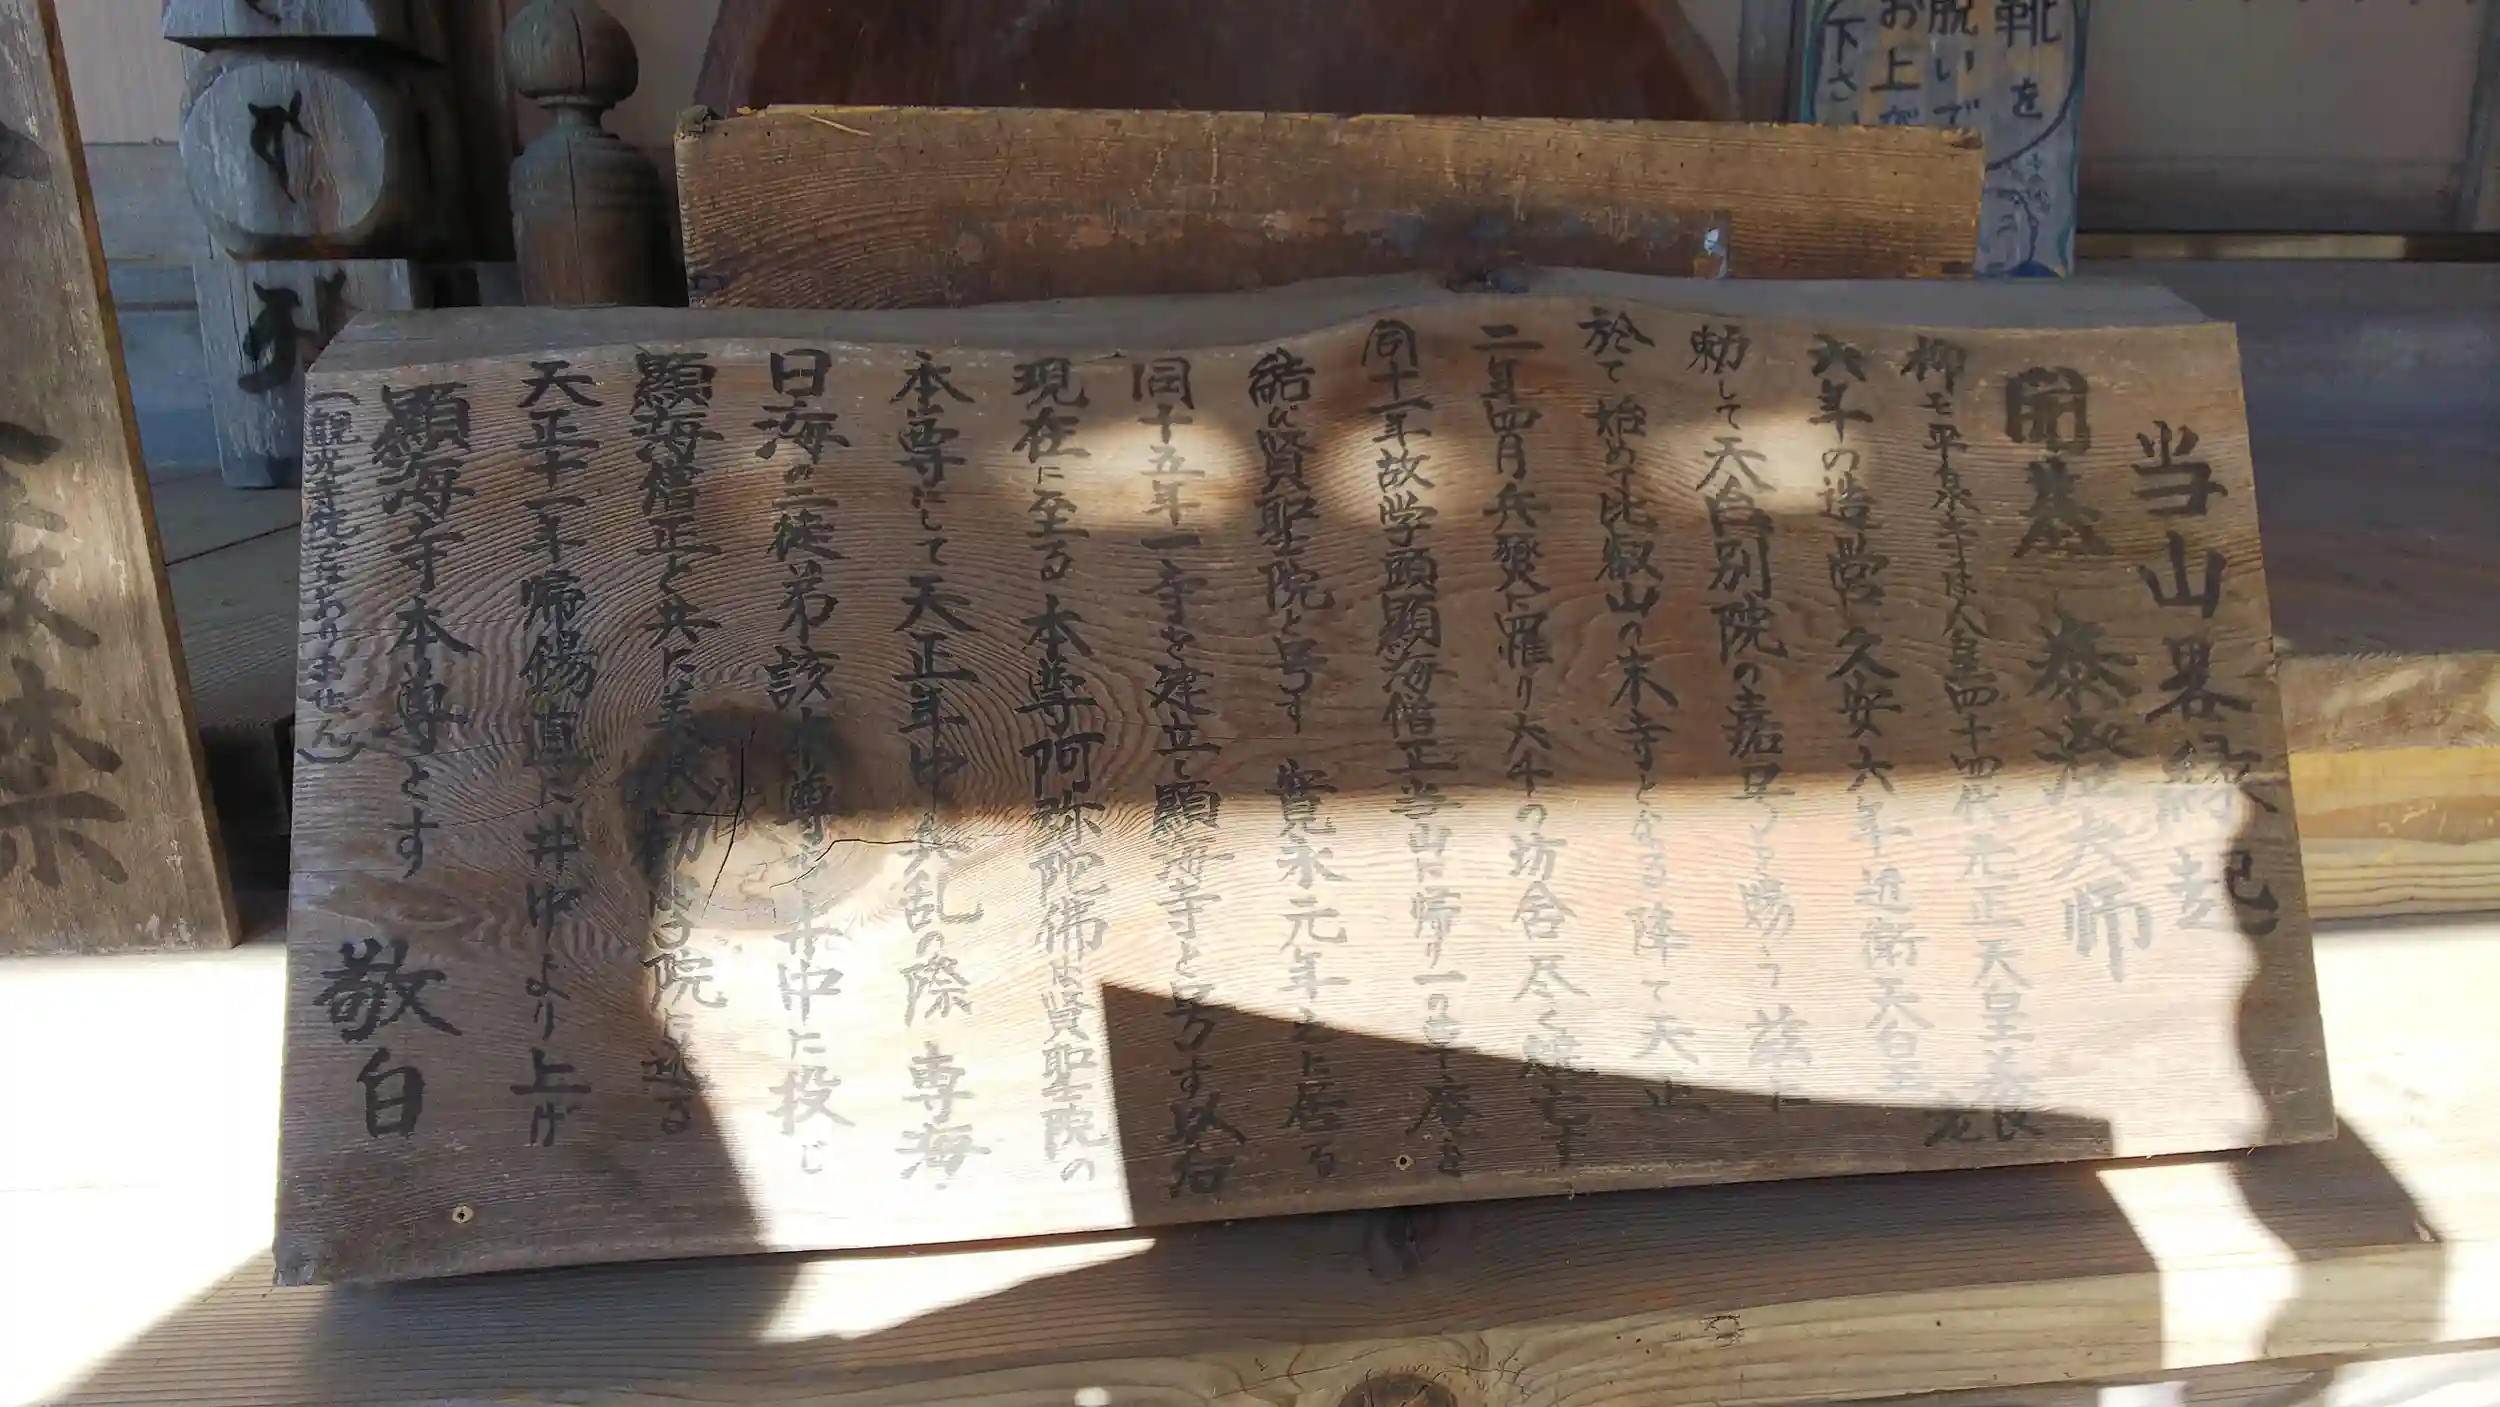 当山畧縁起
開基 泰澄大師
抑モ平泉寺は人皇四十四代元正天皇養老
六年の造営久安六年近衛天皇
勅して天台別院の嘉号を賜う 茲に
於て始めて比叡山の末寺となる降て天正
二年四月兵燹に罹り大半の坊舎尽く
同十一年故学頭顕海僧正当山に帰り一の草庵を
結び賢聖院と号す 寛永元年
同十五年一寺を建立し顯海寺と号す 以后
現在に至る 本尊阿弥陀佛は賢聖院の
本尊にして天正年中兵乱の際 専海
日海の二徒弟該本尊を井中に投じ
顯海僧正と共に美
天正十一年帰錫直に井中より上げ
顯海寺本尊とす 敬白
靴を
脱いで
お上が
下さ
禁